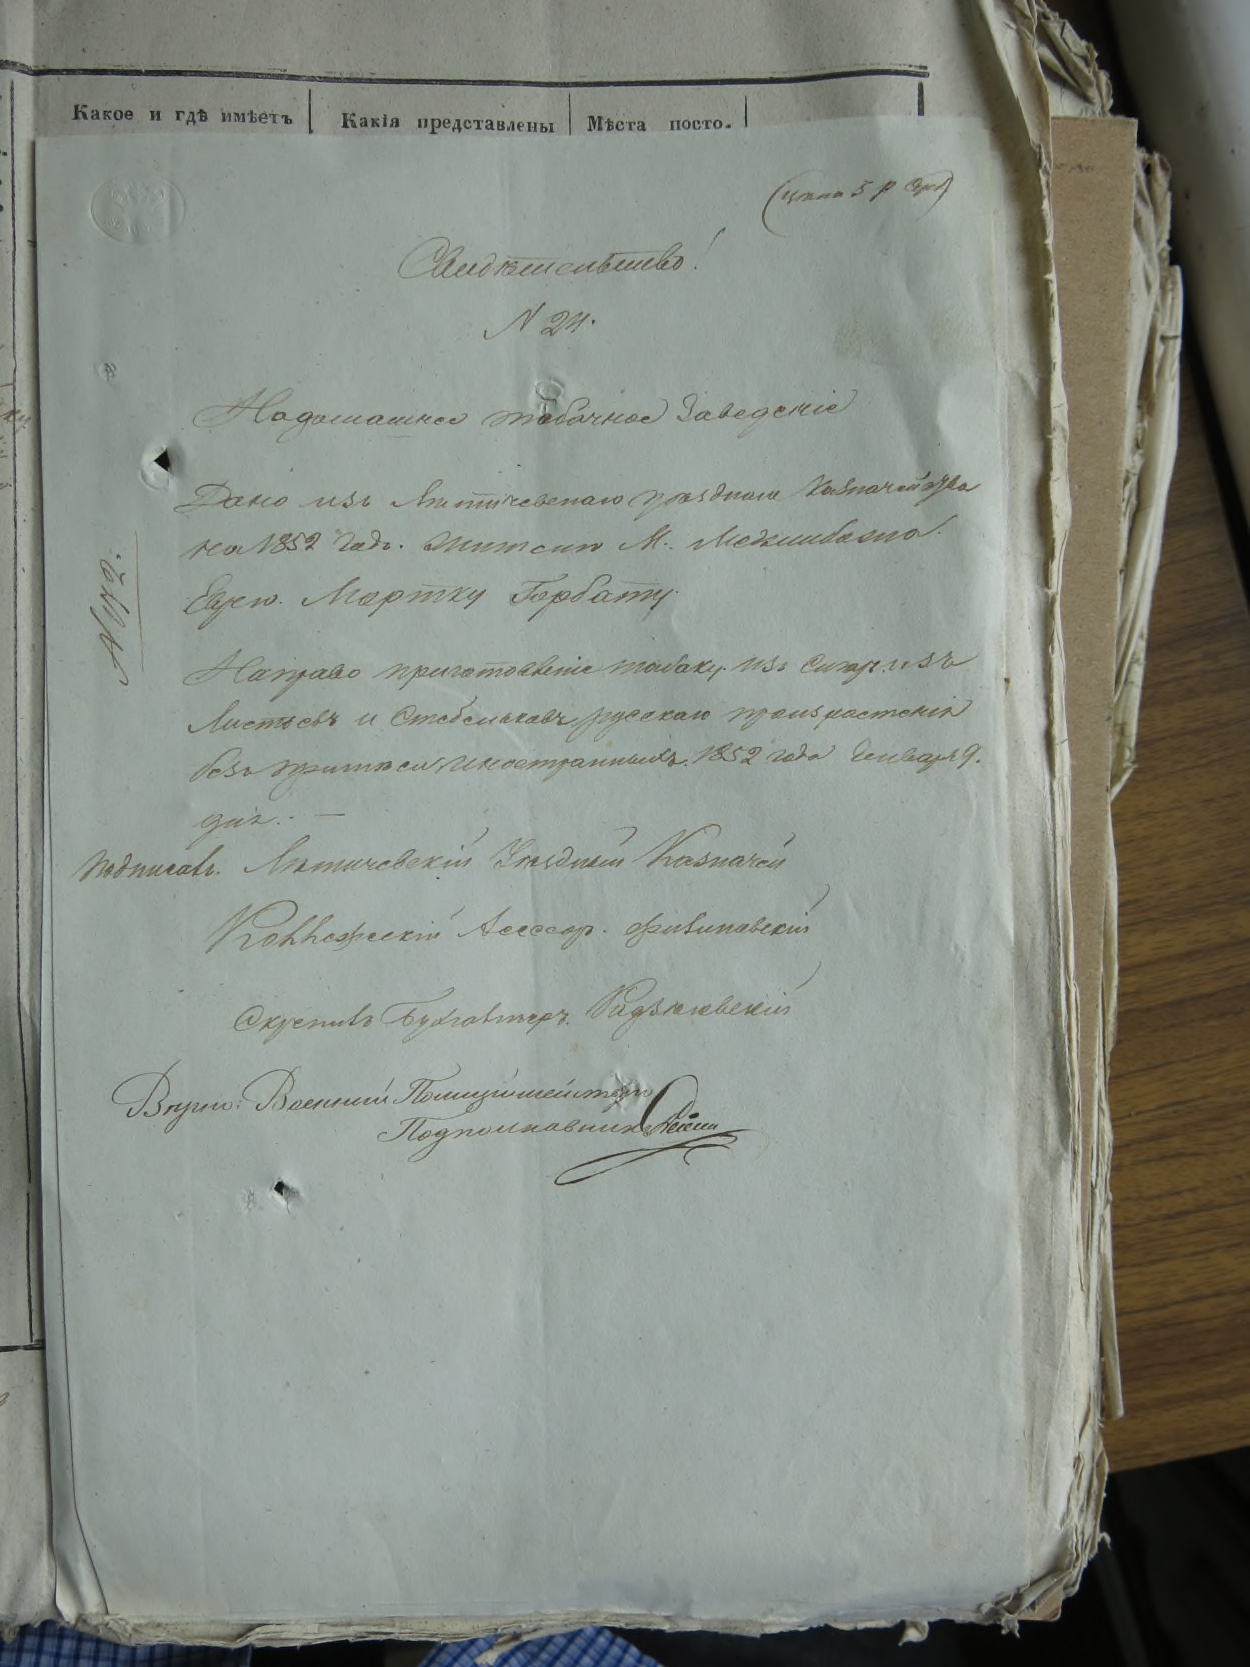 Какое и гдѣ имѣетъ
Какія представлены
Мѣста посто.
(цѣна 5 р сер)
Свидѣтельство!
N 24.
На домашнее табачное Заведеніе
Дано изъ Летичевскаго уѣзднаго Казначейства
на 1852 Годъ. Жителю М. Меджибожа
Еврею. Мортку Горбату
На право приготовленіе табаку изъ сигаръ изъ
Листьевъ и Стебельковъ русскаго произрастенія
безъ примѣси иностранныхъ. 1852 года Генваря 9.
дня. —
Подписалъ. Летичевскій Уѣздный Казначей
Коллежскій Асессоръ. Филиповскій
Скрепилъ Бухгалтеръ.
Вѣрно: Военный Полицiймейстеръ
Подполковникъ